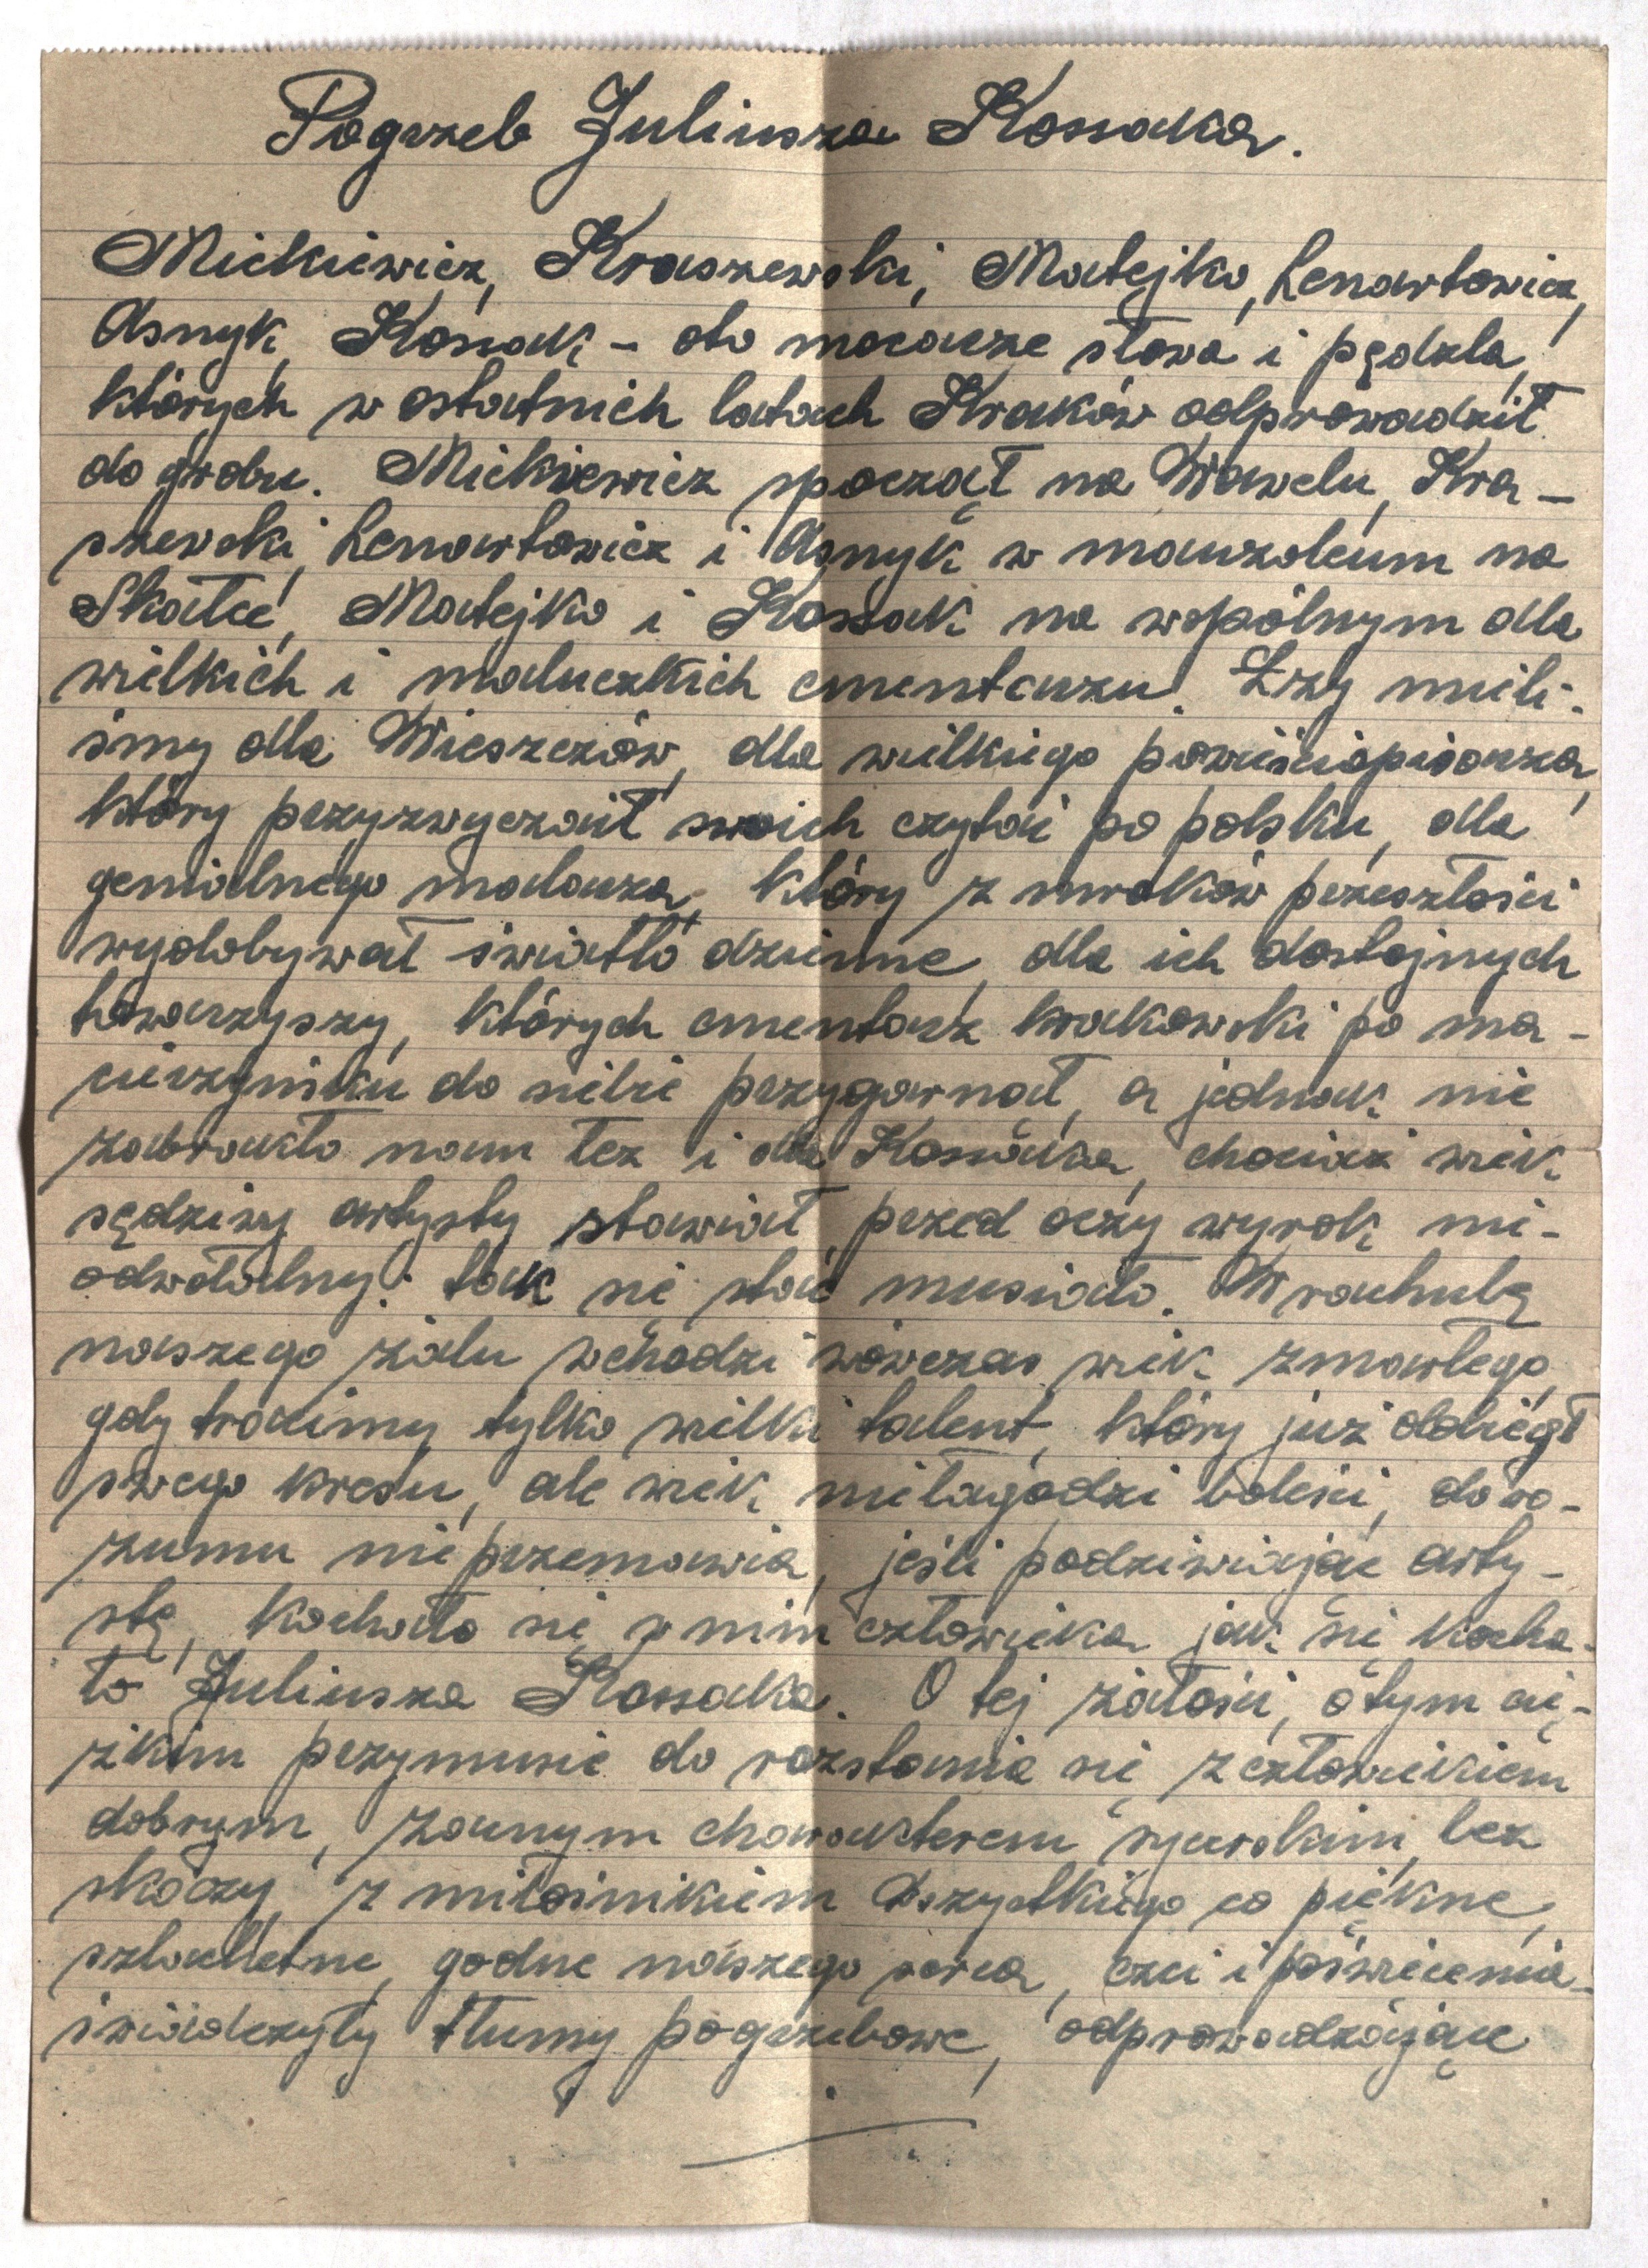 Pogrzeb Juliusza Kossaka.
Mickiewicz, Kraszewski, Matejko, Lenartowicz,
Asnyk, Kossak – oto mocarze słowa i pędzla,
których w ostatnich latach Kraków odprowadził
do grobu. Mickiewicz spoczął na Wawelu, Kra-
szewski, Lenartowicz i Asnyk w mauzoleum na
Skałce, Matejko i Kossak na wspólnym dla
wielkich i maluczkich cmentarzu. Łzy mieli-
śmy dla Wieszczów, dla wielkiego powieściopisarza,
który przyzwyczaił swoich czytać po polsku, dla
genialnego malarza, który z mroków przeszłości
wydobywał światło dzienne, dla ich dostojnych
towarzyszy, których cmentarz krakowski po ma-
cierzyńsku do siebie przygarnął, a jednak nie
zabrakło nam łez i dla Kossaka, chociaż wiek
sędziwy artysty stawiał przed oczy wyrok nie-
odwołalny: tak się stać musiało. W rachubę
naszego żalu wchodzi wówczas wiek zmarłego,
gdy tracimy tylko wielki talent, który już dobiegł
swego kresu, ale wiek nie łagodzi boleści, do ro-
zumu nie przemawia, jeśli podziwiając arty-
stę, kochało się w nim człowieka jak się kocha-
ło Juliusza Kossaka. O tej żałości, o tym cię-
żkim przymusie do rozstania się z człowiekiem
dobrym, zacnym charakterem rycerskim, bez
skazy, z miłośnikiem wszystkiego co piękne,
szlachetne, godne naszego serca, czci i poświęcenia
świadczyły tłumy pogrzebowe, odprowadzające